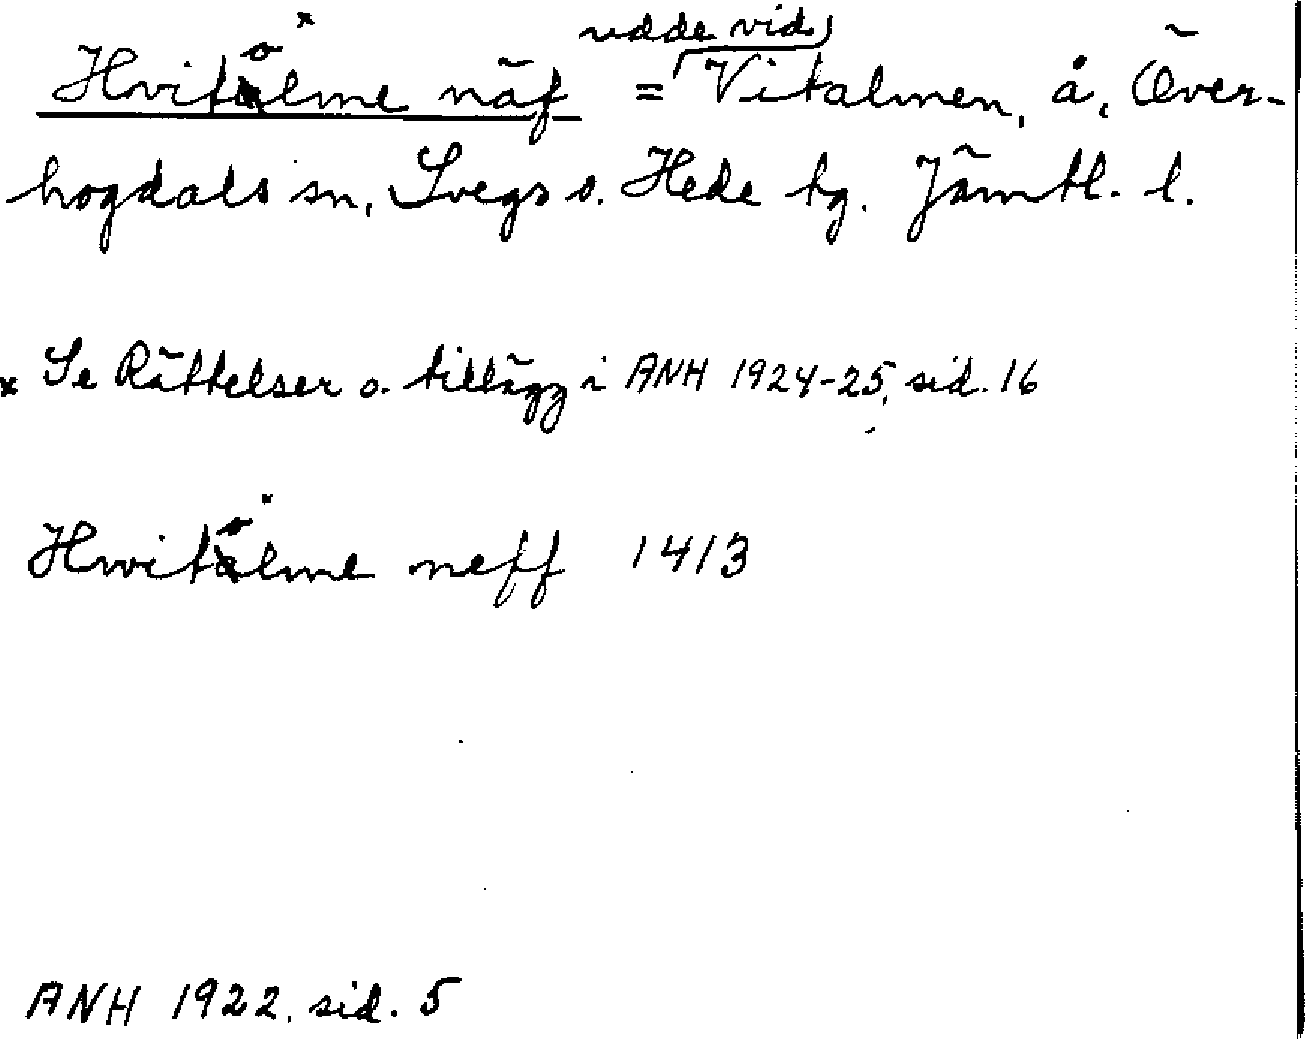 Hvitolme näf × = udde vid Vitalmen, å, Över-
hogdals sn, Svegs o. Hede tg. Jämtl. l.
× Se Rättelser o. tillägg i ANH 1924-25, sid. 16
Hwitolme neff × 1413
ANH 1922. sid. 5